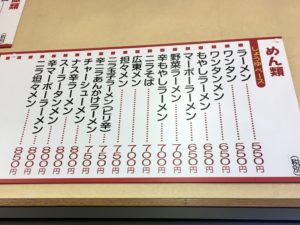 めん類
しょうゆベース
ラーメン 550円
ワンタン 550円
ワンタンメン 650円
もやしラーメン 650円
マーボーラーメン 650円
野菜ラーメン 700円
辛もやしラーメン 700円
ニラそば 700円
広東メン 750円
担々メン 750円
ニラ玉子ラーメン(ピリ辛) 750円
辛ニラあんかけラーメン 750円
チャーシューメン
ナス辛ラーメン 800円
スーラータンメン 800円
辛マーボーラーメン 800円
ニラ担々メン 850円
(税別)